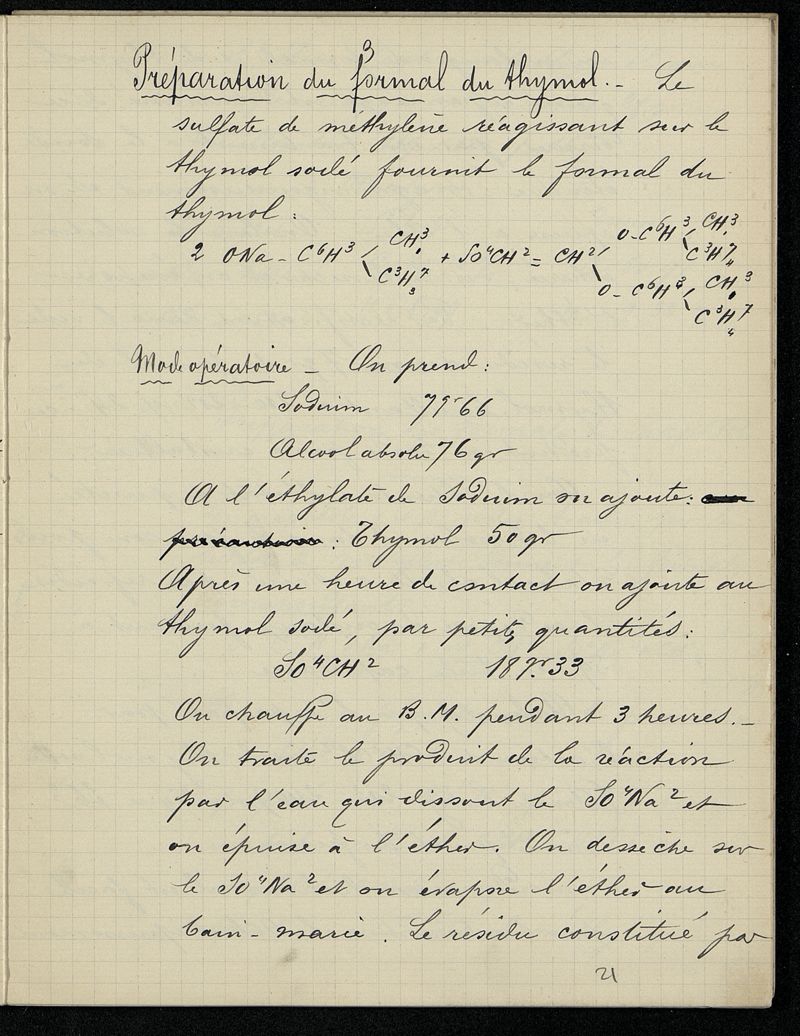 3
Préparation du formal du thymol. - Le
sulfate de méthylène réagissant sur le
thymol sodé fournit le formal du
thymol :
2 ONa - C⁶H³ CH³ C³H⁷ + SO⁴CH² = CH² O-C⁶H³ CH³ C³H⁷ O-C⁶H³ CH³ C³H⁷
Mode opératoire - On prend :
Sodium 7gr66
Alcool absolu 76 gr
A l'éthylate de sodium on ajoute :
: Thymol 50 gr
Après une heure de contact on ajoute au
thymol sodé, par petites quantités :
SO⁴CH² 18gr.33
On chauffe au B.M. pendant 3 heures. -
On traite le produit de la réaction
par l'eau qui dissout le SO⁴Na² et
on épuise à l'éther. On dessèche sur
le SO⁴Na² et on évapore l'éther au
bain-marie. Le résidu constitué par
21